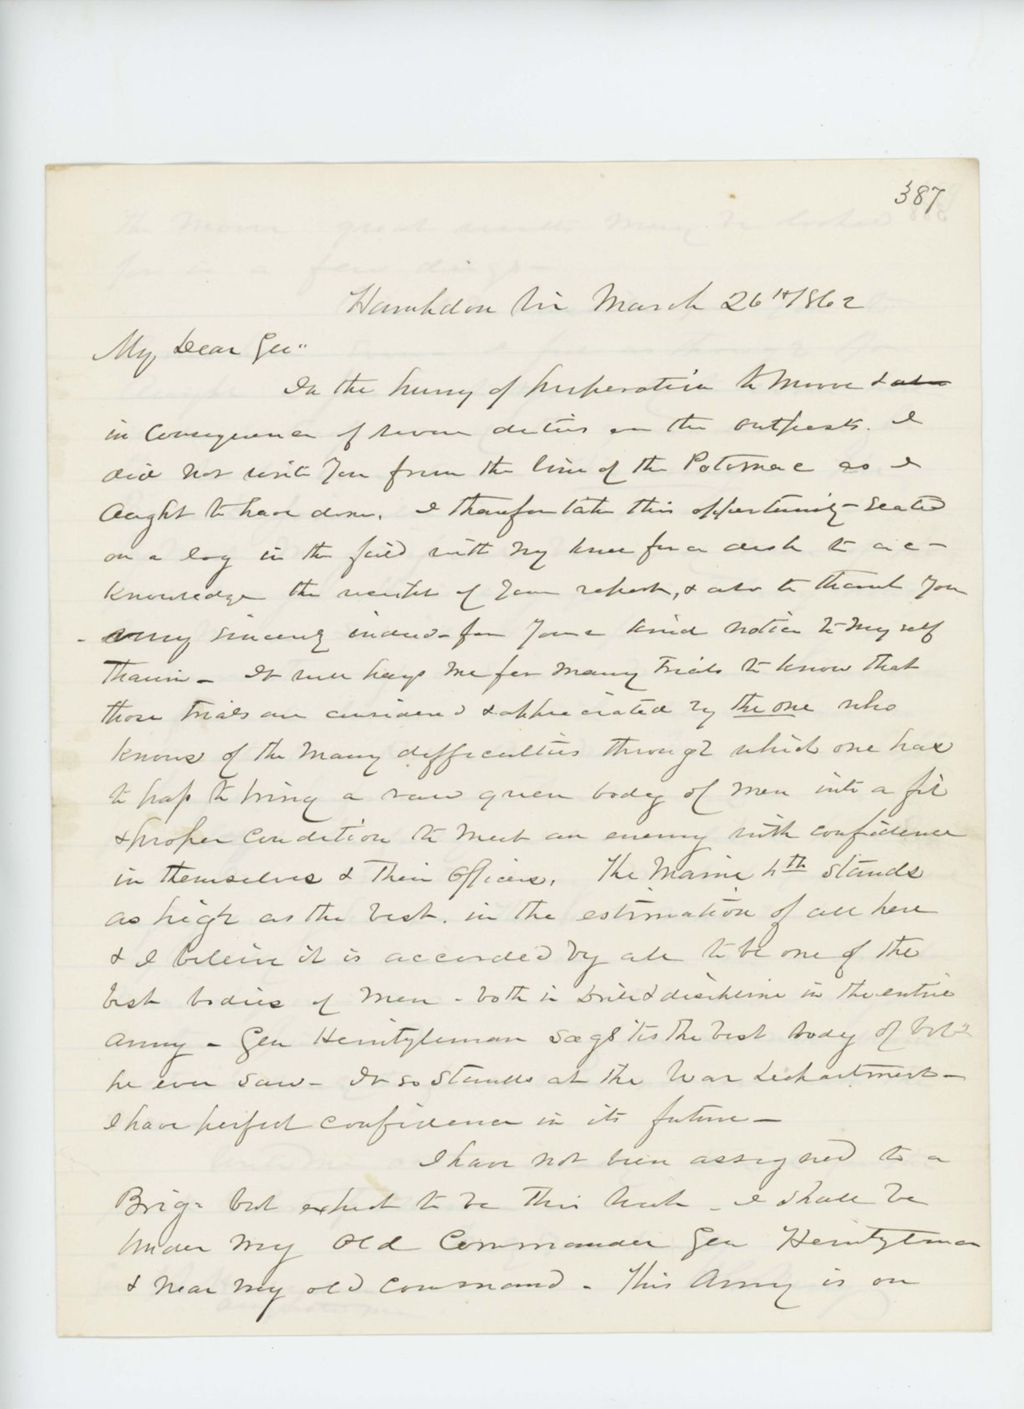 387
Hamhdon Vir March 26th/862
My Dear Gen"
In the hurry of preperation to move &
in consequence of severe duties on the outposts. I
did not write you from the line of the Potomac as I
aught to have done. I therefore take this oppertunity - seated
on a log in the field with my knee for a desk to ac-
knowledge the receipt of your report, & also to thank you
- very sincerely indeed - for your kind notice to myself
therein - It will pay me for many trials to know that
those trials are considered & appreciated by the one who
knows of the many difficulties through which one has
to pass to bring a raw green body of men into a fit
& proper condition to meet an enemy with confidence
in themselves & their officers. The Maine 4th stands
as high as the best. in the estimation of all here
& I beleive it is accorded by all to be one of the
best bodies of men - both in drill & discipline in the entire
army - Gen Heintzleman says tis the best body of vols
he ever saw - It so stands at the War Department -
I have perfect confidence in its future -
I have not been assigned to a
Brig - but expect to be this week - I shall be
under my old Commander Gen Heintzleman
& near my old command - This Army is on